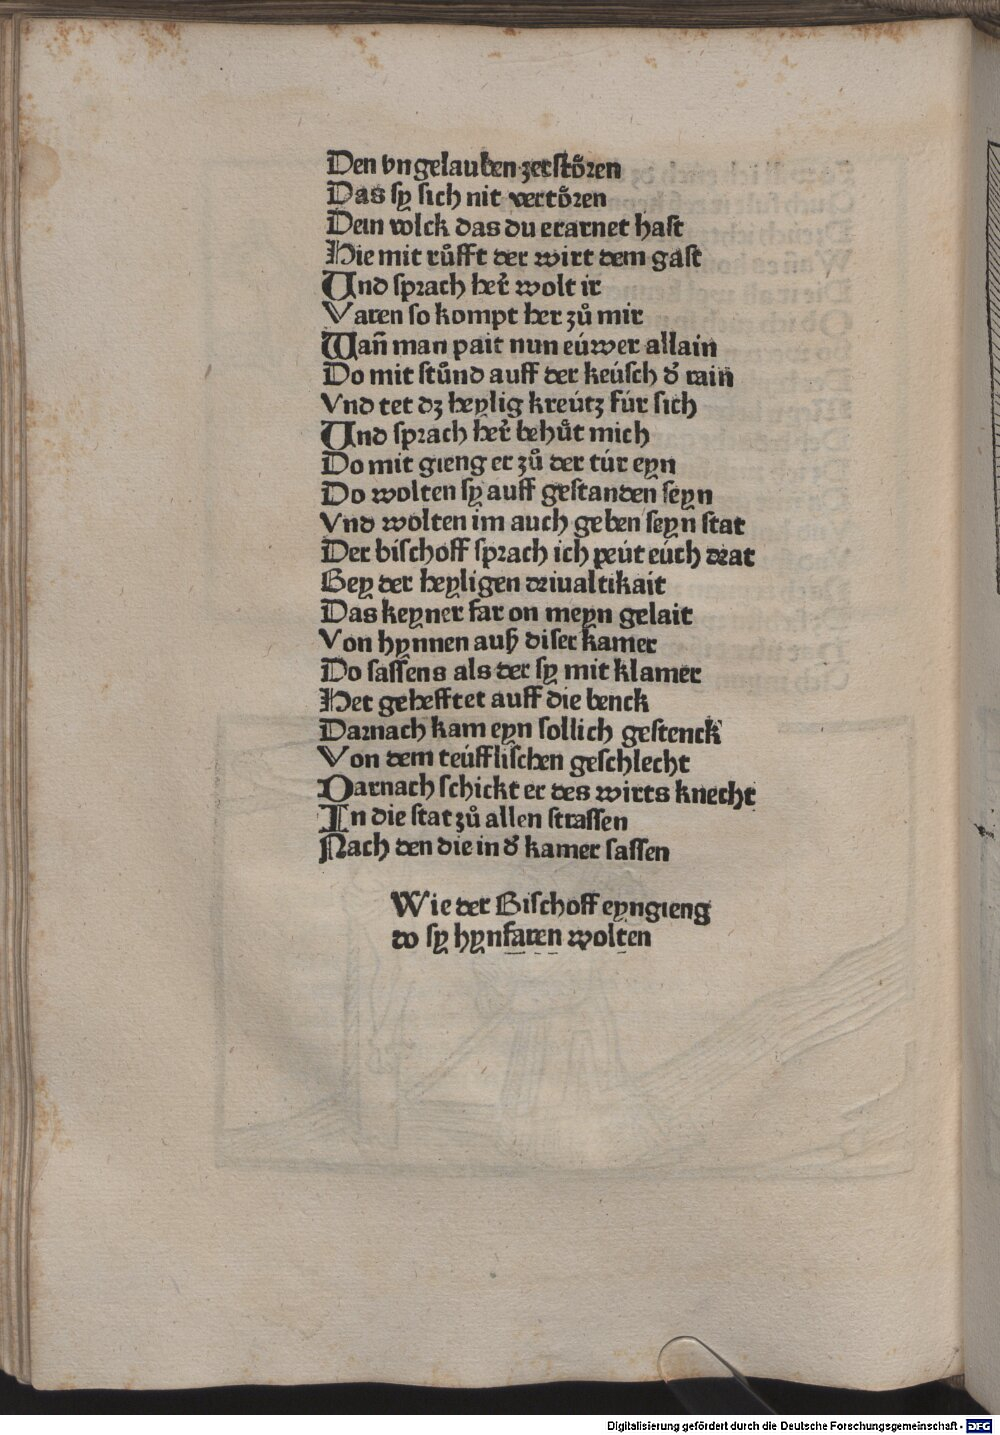 Den vngelauben zerstoͤren
Das sy sich nit vertoͤren
Dein volck das du erarnet hast
Hie mit ruͦfft der wirt dem gast
Vnd sprach her̄ wolt ir
Varen so kompt her zuͦ mir
Wañ man pait nun eúwer allain
Do mit stuͦnd auff der keúsch dˀ rain
Vnd tet dz heylig kreútz fúr sich
Vnd sprach her̄ behuͤt mich
Do mit gieng er zuͦ der túr eyn
Do wolten sy auff gestanden seyn
Vnd wolten im auch geben seyn stat
Der bischoff sprach ich peút eúch drat
Bey der heyligen driualtikait
Das keyner far on meyn gelait
Von hynnen auß diser kamer
Do sassens als der sy mit klamer
Het gehefftet auff die benck
Darnach kam eyn sollich gestenck
Von dem teúfflischen geschlecht
Darnach schickt er des wirts knecht
In die stat zuͦ allen strassen
Nach den die in dˀ kamer sassen
Wie der Bischoff eyngieng
do sy hynfaren wolten
Digitalisierung gefördert durch die Deutsche Forschungsgemeinschaft - DFG